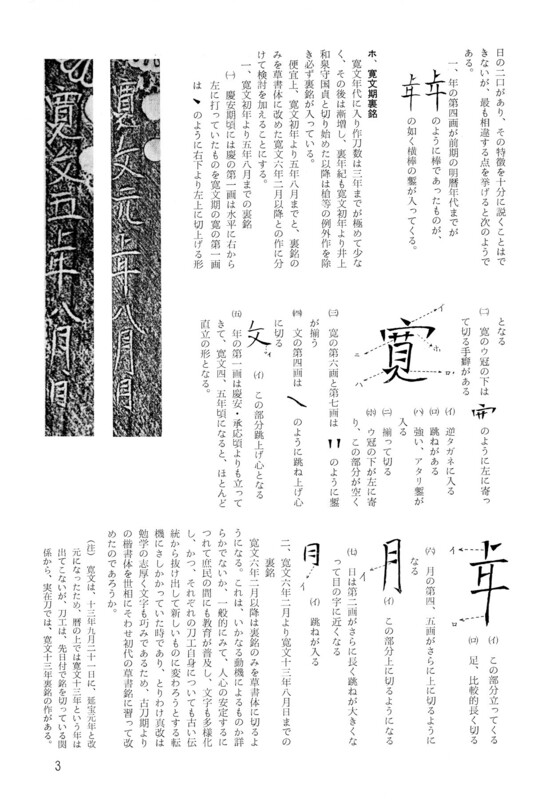 日の二口があり、その特徴を十分に説くことはで
きないが、最も相違する点を挙げると次のようで
ある。
一、年の第四画が前期の明暦年代までが
年のように棒であったものが、
年の如く横棒の鏨が入ってくる。
ホ、寛文期裏銘
寛文年代に入り作刀数は三年までが極めて少な
く、その後は漸増し、裏年紀も寛文初年より井上
和泉守国貞と切り始めた以降は槍等の例外作を除
き必ず裏銘が入っている。
便宜上、寛文初年より五年八月までと、裏銘の
みを草書体に改めた寛文六年二月以降との作に分
けて検討を加えることにする。
一、寛文初年より五年八月までの裏銘
㈠ 慶安期頃には慶の第一画は水平に右から
左に打っていたものを寛文期の寛の第一画
は、のように右下より左上に切上げる形
となる
㈡ 寛のウ冠の下は のように左に寄っ
て切る手癖がある
寛
イ
ロ
ハ
ニ
ホ
(イ) 逆タガネに入る
(ロ) 跳ねがある
(ハ) 強い、アタリ鏨が
入る
(ニ) 揃って切る
(ホ) ウ冠の下が左に寄
り、この部分が空く
㈢ 寛の第六画と第七画は のように鏨
が揃う
㈣ 文の第四画は のように跳ね上げ心
に切る
文
イ
(イ) この部分跳上げ心となる
㈤ 年の第一画は慶安・承応頃よりも立って
きて、寛文四、五年頃になると、ほとんど
直立の形となる。
年
イ
ロ
(イ) この部分立ってくる
(ロ) 足、比較的長く切る
㈥ 月の第四、五画がさらに上に切るように
なる
月
イ
(イ) この部分上に切るようになる
㈦ 日は第二画がさらに長く跳ねが大きくな
って目の字に近くなる
日
イ
(イ) 跳ねが入る
二、寛文六年二月より寛文十三年八月日までの
裏銘
寛文六年二月以降は裏銘のみを草書体に切るよ
うになる。これは、いかなる動機によるものか詳
らかでないか、一般的にみて、人心の安定するに
つれて庶民の間にも教育が普及し、文字も多様化
し、かつ、それぞれの刀工自身についても古い伝
統から抜け出して新しいものに変わろうとする転
機にさしかかっていた時であり、とりわけ真改は
勉学の志厚く文字も巧みであるため、古刀期より
の楷書体を世相にそわせ初代の草書銘に習って改
めたのであろうか。
(注) 寛文は、十三年九月二十一日に、延宝元年と改
元になったため、暦の上では寛文十三年という年は
出てこないが、刀工は、先日付で銘を切っている関
係から、実在刀では、寛文十三年裏銘の作がある。
寛文元年八月日
寛文五年八月日
3